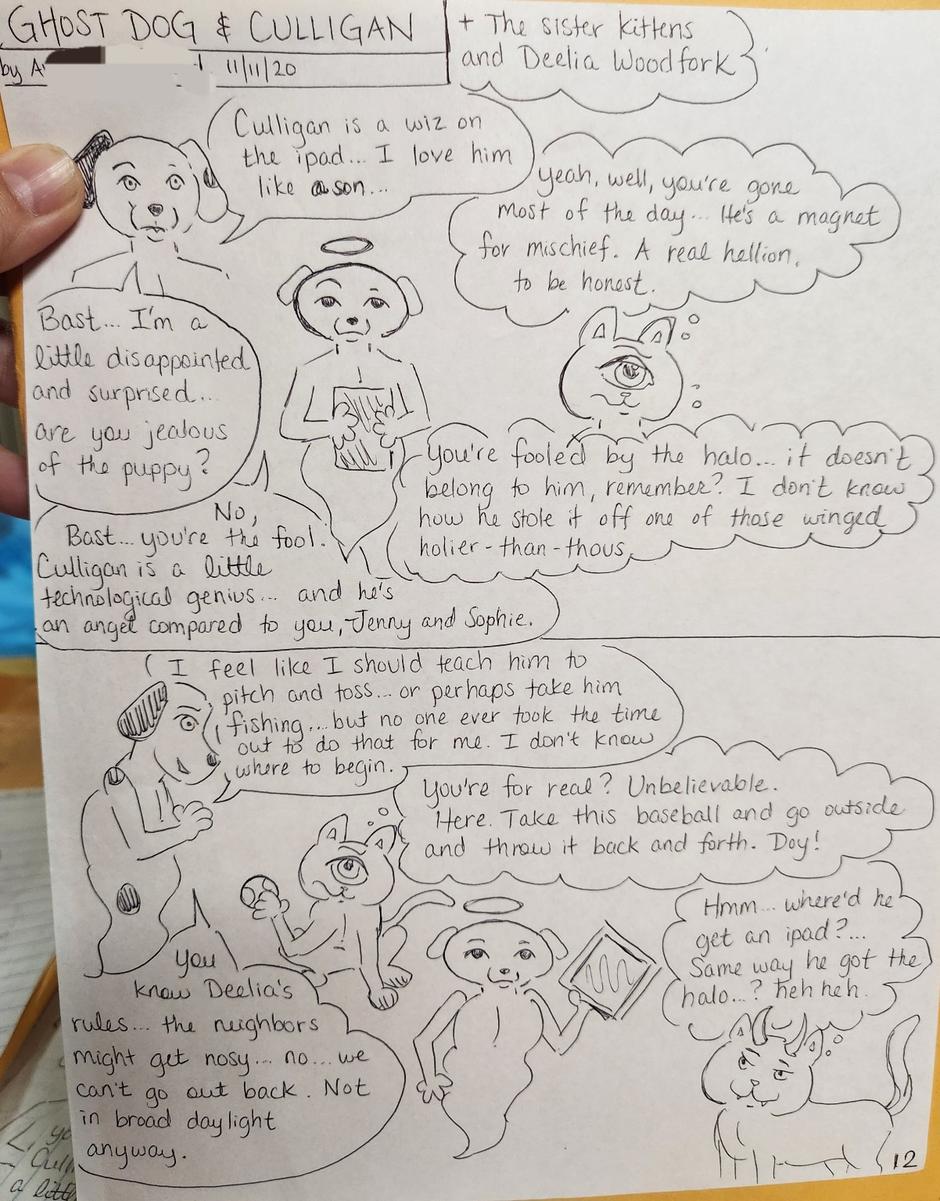 GHOST DOG & CULLIGAN
by A
11/11/20
+ The sister kittens
and Deelia Woodfork
Culligan is a wiz on
the ipad... I love him
like a son...
yeah, well, you're gone
most of the day... He's a magnet
for mischief. A real hellion,
to be honest.
Bast... I'm a
little disappointed
and surprised...
are you jealous
of the puppy?
You're fooled by the halo... it doesn't
belong to him, remember? I don't know
how he stole it off one of those winged
holier-than-thous.
No,
Bast... you're the fool.
Culligan is a little
technological genius... and he's
an angel compared to you, Jenny and Sophie.
I feel like I should teach him to
pitch and toss... or perhaps take him
fishing....but no one ever took the time
out to do that for me. I don't know
where to begin.
You're for real? Unbelievable.
Here. Take this baseball and go outside
and throw it back and forth. Doy!
You
know Deelia's
rules... the neighbors
might get nosy... no... we
can't go out back. Not
in broad daylight
anyway.
Hmm... where'd he
get an ipad?...
Same way he got the
halo...? heh heh.
12